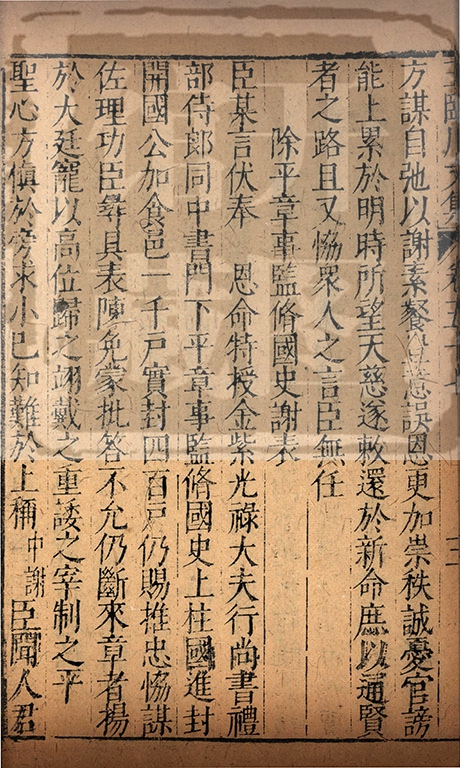 臨川文集 卷五十七 三
方謀自弛以謝素餐豈意誤恩更加崇秩誠憂官謗
能上累於明時所望天慈逐敕還於新命庶以通賢
者之路且又恊衆人之言臣無任
除平章事監脩國史謝表
臣某言伏奉 恩命特授金紫光祿大夫行尚書禮
部侍郎同中書門下平章事監脩國史上柱國進封
開國公加食邑一千戸實封四百戸仍賜推忠恊謀
佐理功臣尋具表陳免蒙批答不允仍斷來章者揚
於大廷寵以高位歸之翊戴之重諉之宰制之平
聖心方傎於旁求小已知難於上稱中謝臣聞人君